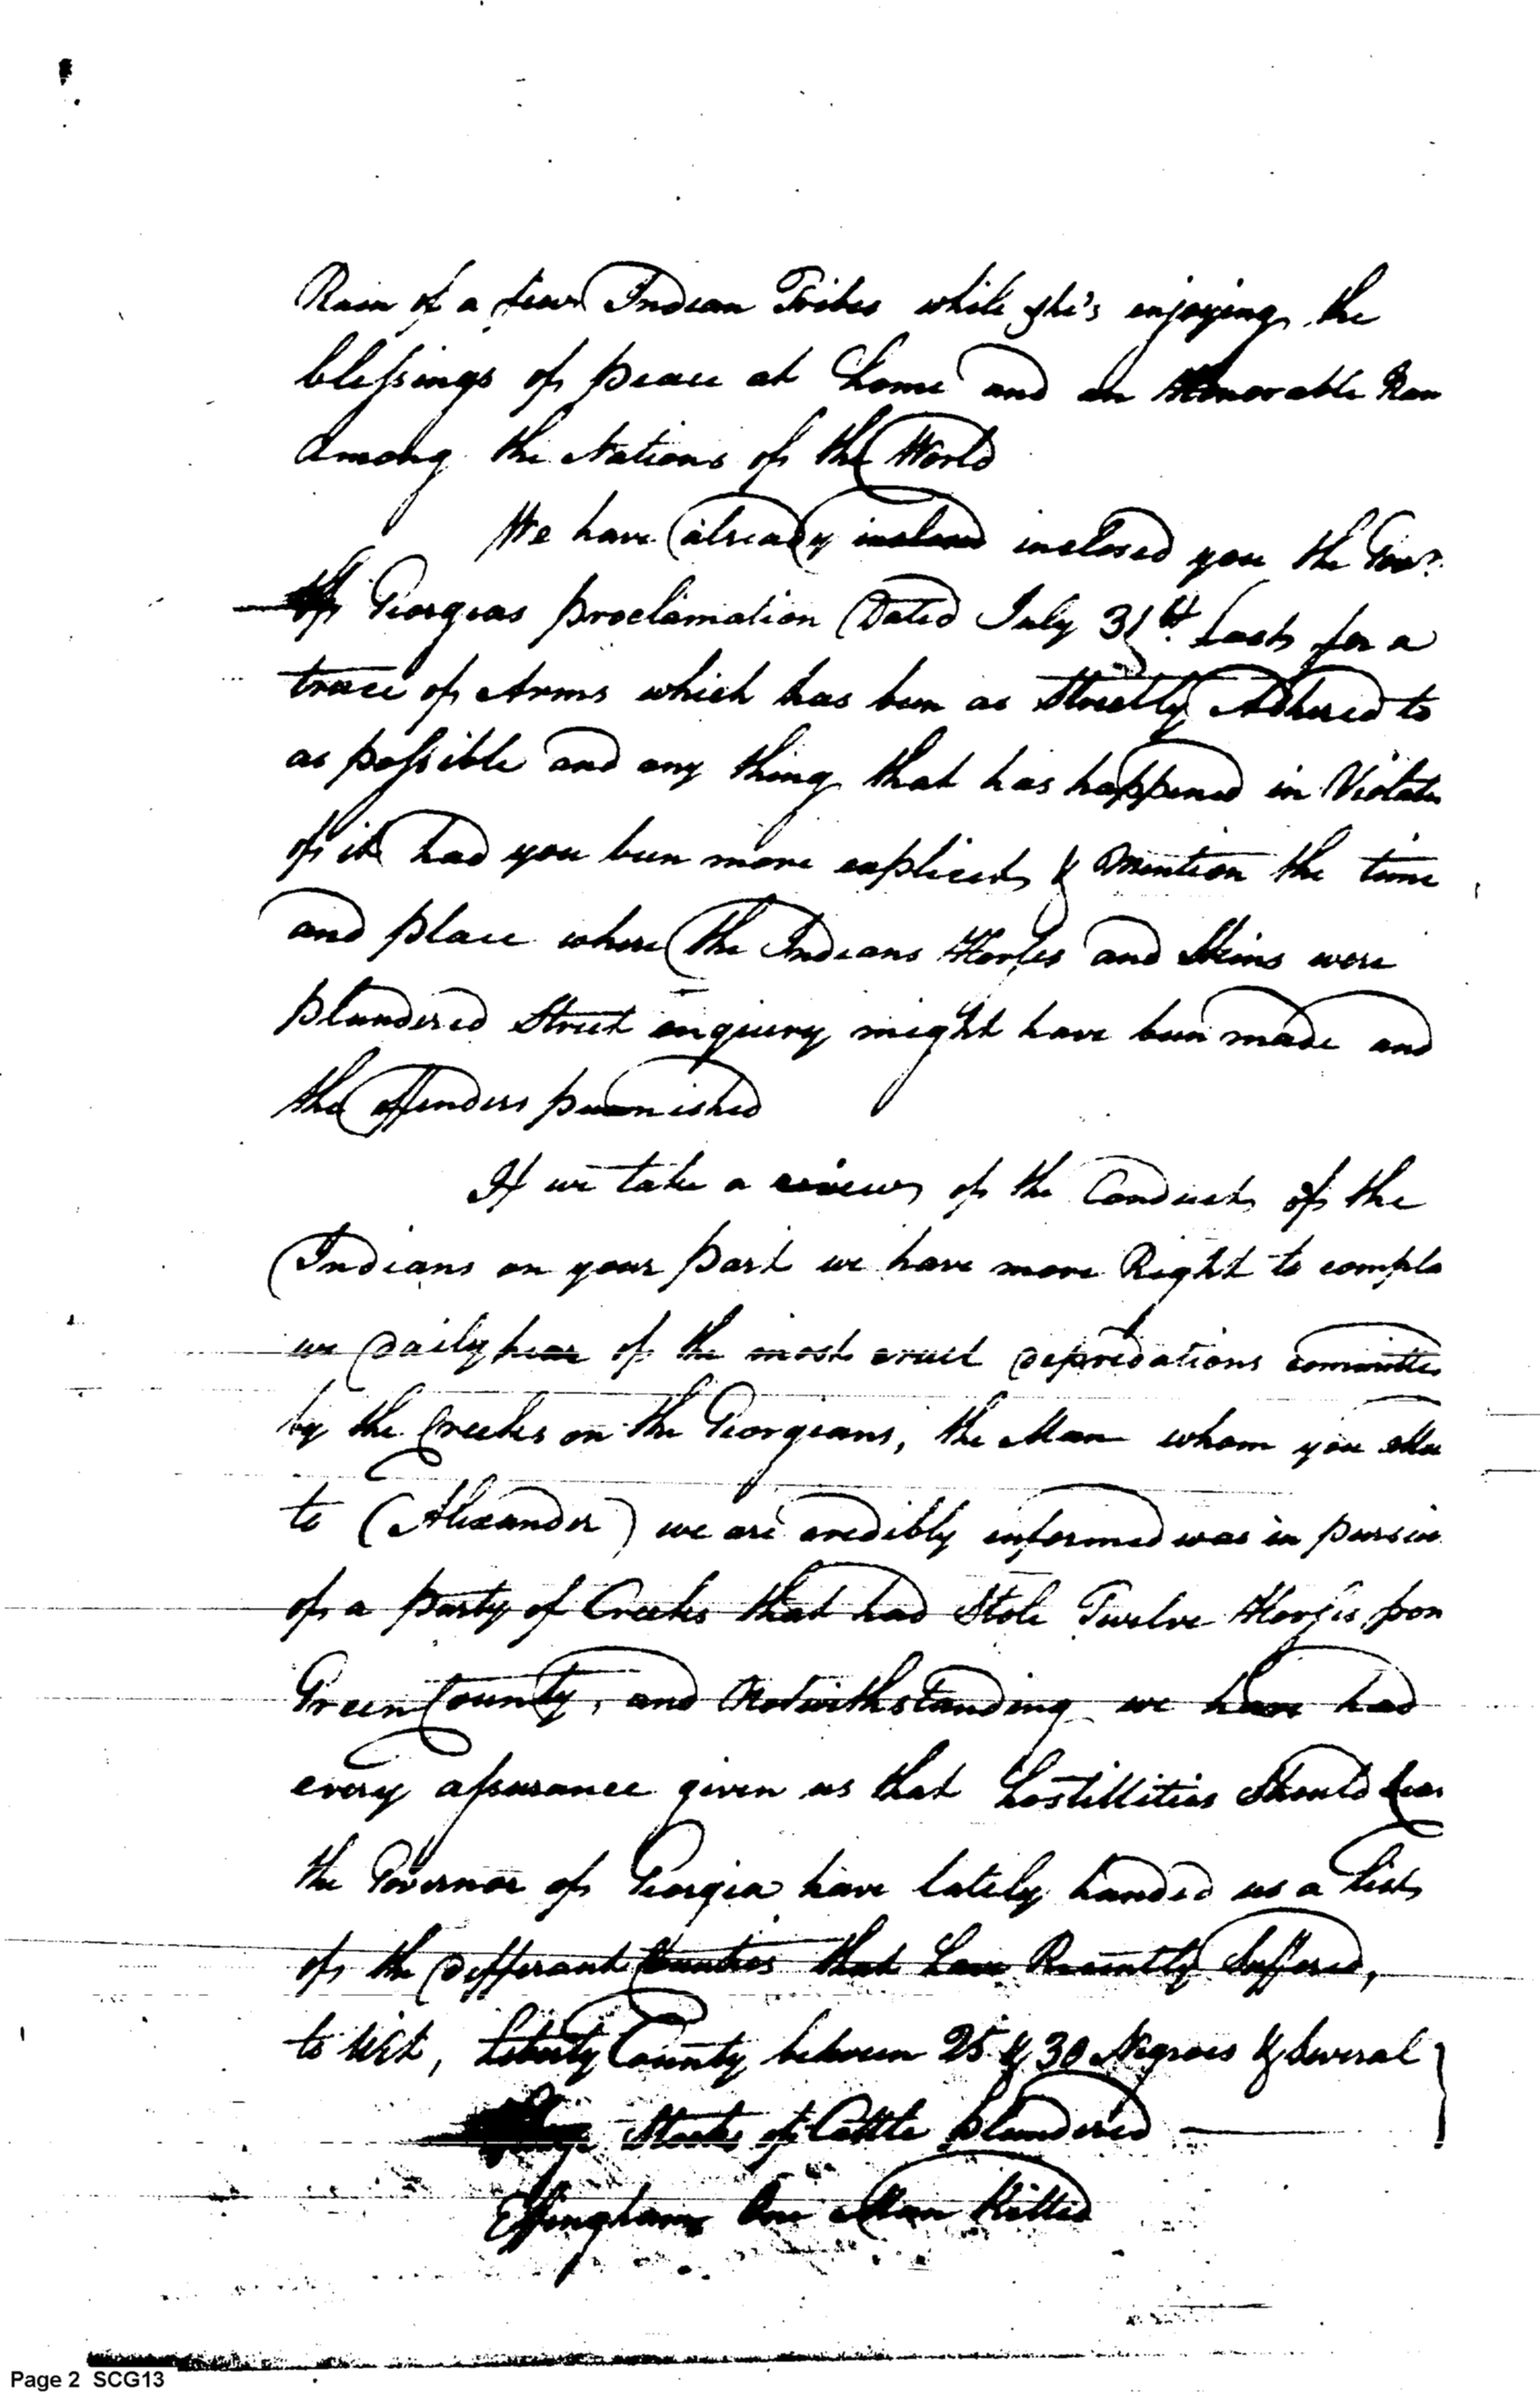 Ruin of a few Indian Tribes while she's enjoying the
blessings of peace at home and an Honorable Ran
among the Nations of the World
We have already inclosed you the Govr.
of Georgeas proclamation Dated July 31st. last for a
truce of Arms which has been as strictly Adhered to
as possible and any thing that has happened in Violati
of it had you been more explicit & mention the time
and place where the Indians Horses and Skins were
plundered Strict enquiery might have been made and
the offenders punnished
If we take a review of the Conduct of the
Indians on your part we have more Right to compla
we daily hear of the most cruel depredations committe
by the Creeks on the Georgeans, the Man whom you allu
to (Alexander) we are credibly informed was in pursui
of a party of Creeks that had Stole Twelve Horses from
Green County, and Notwithstanding we have had
every assurance given us that hostillities Should
the Governor of Georgia have lately handed us a list
of the differant Counties that have Recently Suffered,
to wit, Liberty County between 25 & 30 Negroes & several
large Stocks of Cattle plundered
Effingham One Man Killed
Page 2 SCG13